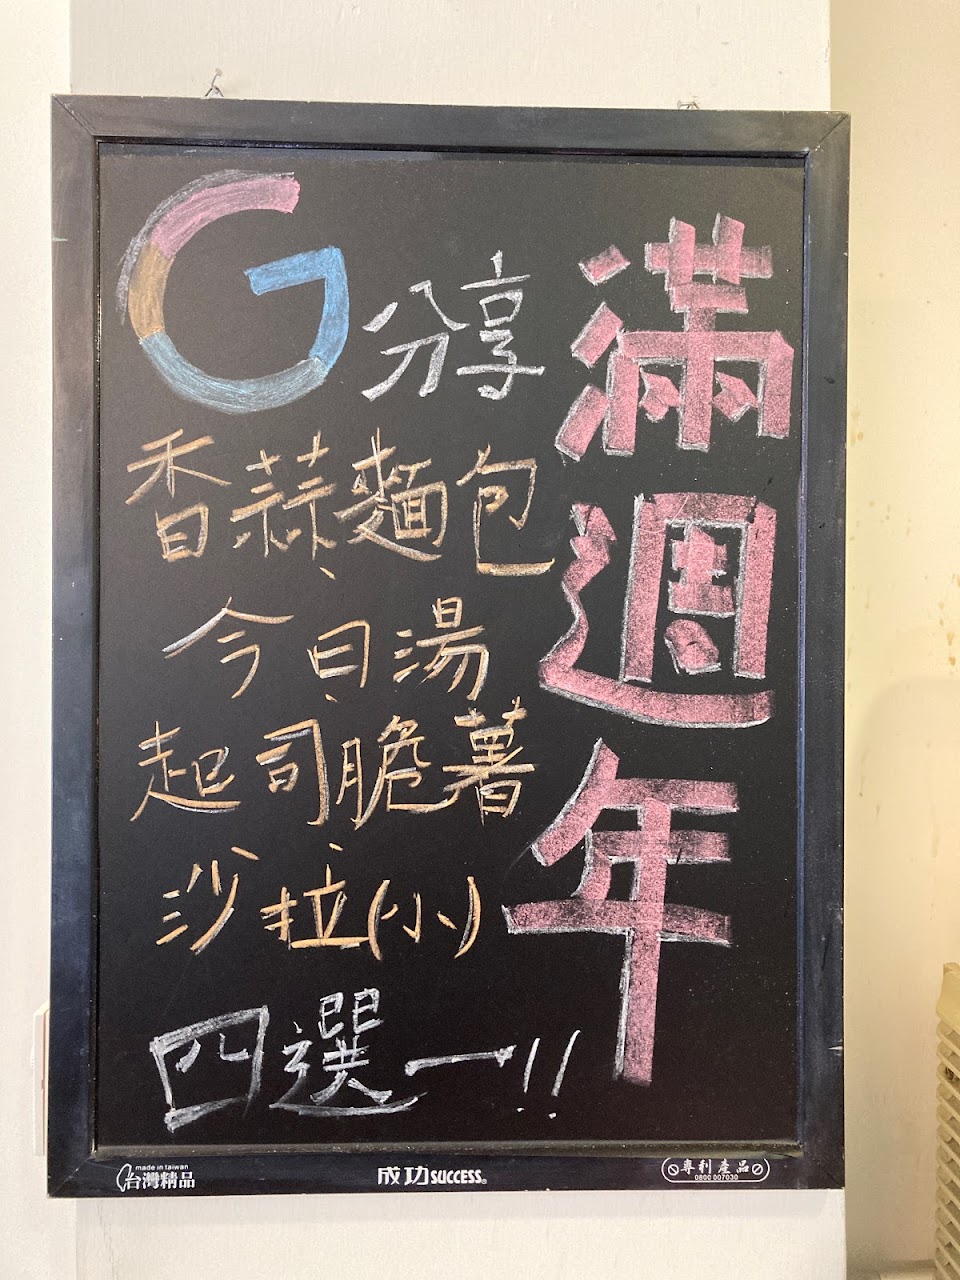 滿週年
G分享
香蒜麵包、
今日湯、
起司脆薯、
沙拉(小)
四選一!!
made in taiwan
台灣精品
成功SUCCESS®
專利產品
0800 007030